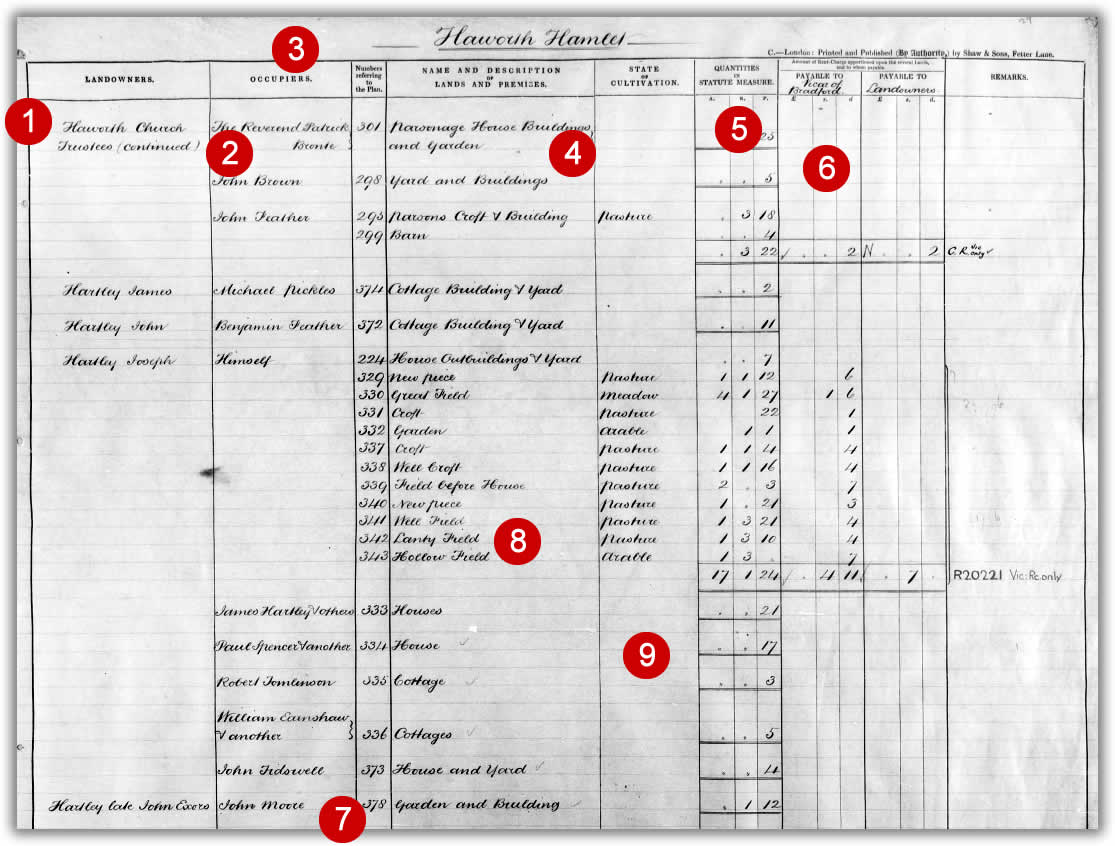 29
Haworth Hamlet
C.—London: Printed and Published (By Authority,) by Shaw & Sons, Fetter Lane.
LANDOWNERS. OCCUPIERS. Numbers referring to the Plan. NAME AND DESCRIPTION OF LANDS AND PREMISES. STATE OF CULTIVATION. QUANTITIES IN STATUTE MEASURE. Amount of Rent-Charge apportioned upon the several Lands, and to whom payable. REMARKS.
PAYABLE TO Vicar of Bradford. PAYABLE TO Landowners
A. R. P. £ s. d. £ s. d.
1 2 3 4 5 6 7 8 9
Haworth Church The Reverend Patrick 301 Parsonage House Buildings
Trustees (continued) Bronte and Garden 25
John Brown 298 Yard and Buildings . . 5
John Feather 295 Parsons Croft & Building Pasture . 3 18
299 Barn . . 4
. 3 22 . . 2 N . . 2 C. R. Vic only
Hartley James Michael Pickles 374 Cottage Building & Yard . . 2
Hartley John Benjamin Feather 372 Cottage Building & Yard . . 11
Hartley Joseph Himself 224 House Outbuildings & Yard . . 7
329 New piece Pasture 1 1 12 6
330 Great Field Meadow 4 1 27 1 6
331 Croft Pasture 22 1
332 Garden Arable 1 1 1
337 Croft Pasture 1 1 4 4
338 Well Croft Pasture 1 1 16 4
339 Field before House Pasture 2 . 3 7
340 New piece Pasture 1 . 21 3
341 Well Field Pasture 1 3 21 4
342 Lanty Field Pasture 1 3 10 4
343 Hollow Field Arable 1 3 . 7
17 1 24 . 4 11 . 7 . R20221 Vic: Rc. only
James Hartley & others 333 Houses . . 21
Paul Spencer & another 334 House . . 17
Robert Tomlinson 335 Cottage . . 3
William Earnshaw
& another 336 Cottages . . 5
John Tidswell 373 House and Yard . . 4
Hartley late John Exors John Moore 378 Garden and Building . 1 12